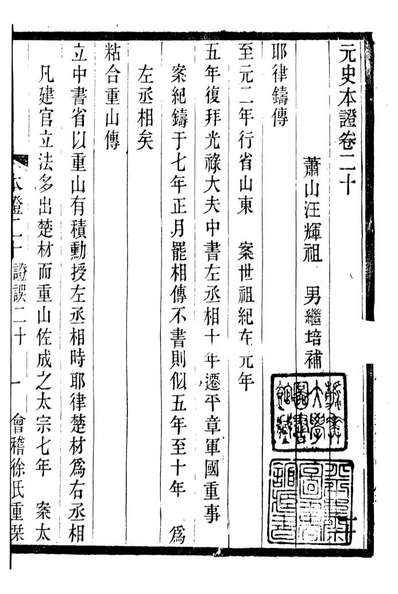 元史本證卷二十
蕭山汪輝祖 男繼培補
耶律鑄傳
至元二年行省山東 案世祖紀在元年
五年復拜光祿大夫中書左丞相十年遷平章軍國重事
案紀鑄于七年正月罷相傳不書則似五年至十年 爲
左丞相矣
粘合重山傳
立中書省以重山有積勳授左丞相時耶律楚材爲右丞相
凡建官立法多出楚材而重山佐成之太宗七年 案太
本證二十 證誤二十 一 會稽徐氏重栞